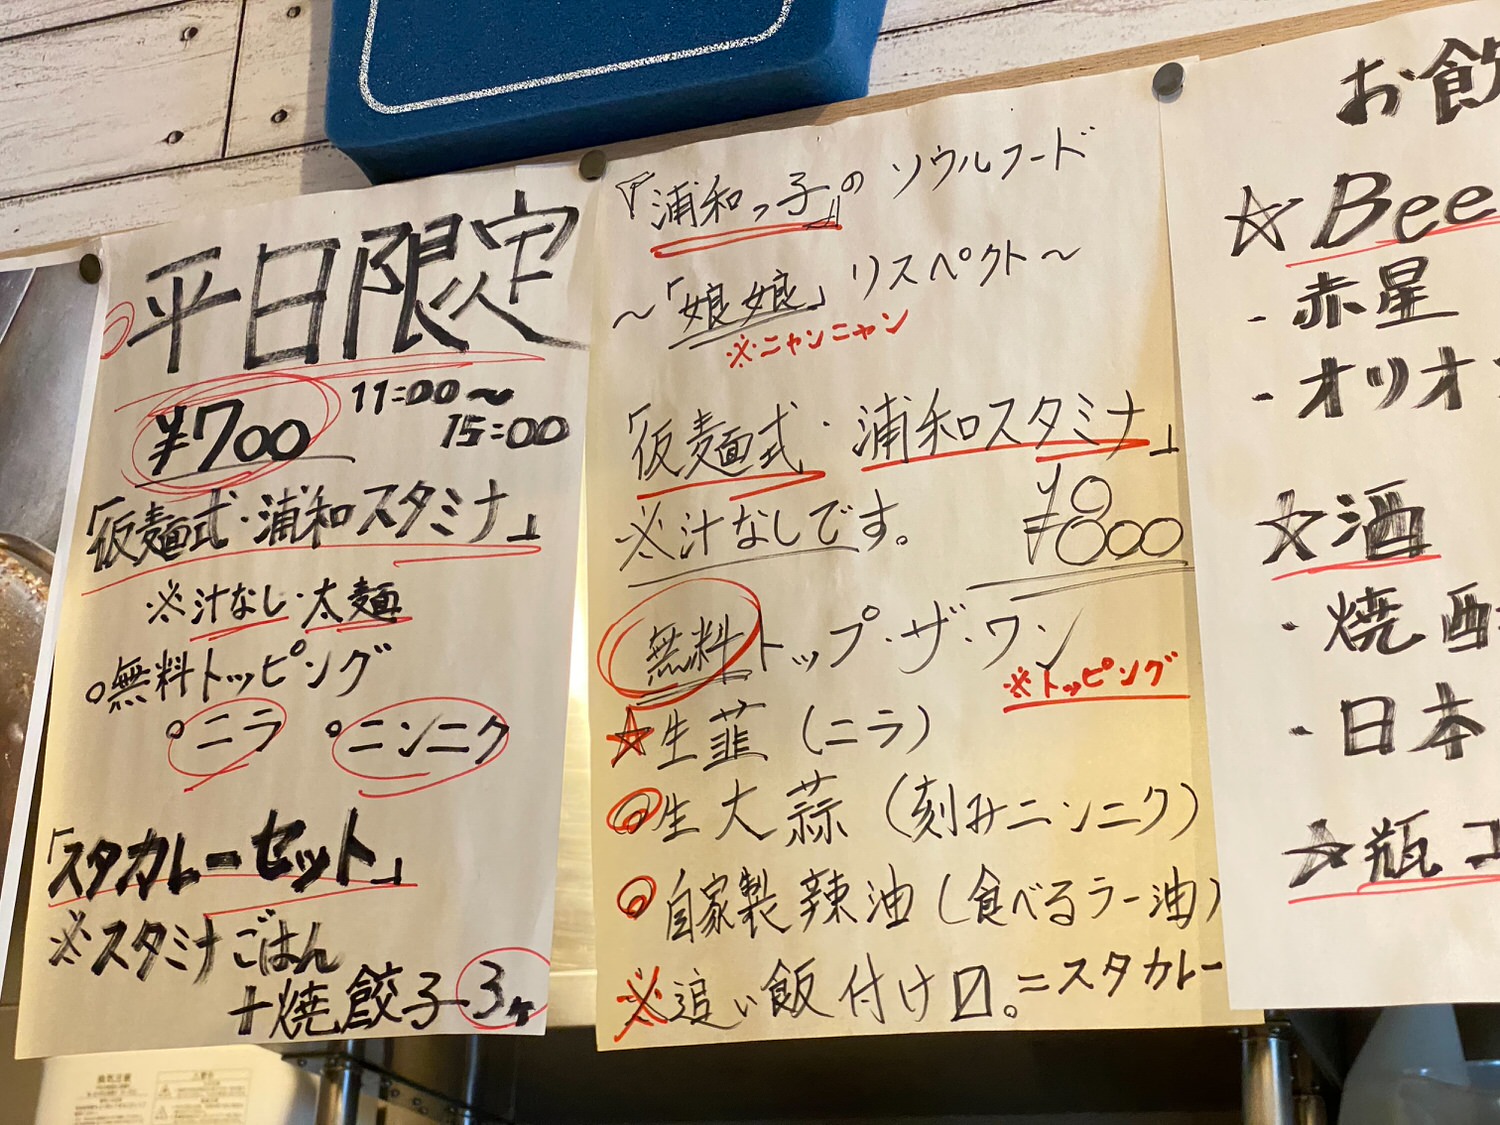 平日限定
¥700 11:00〜
15:00
「仮麺式・浦和スタミナ」
※汁なし・太麺
○無料トッピング
○ニラ ○ニンニク
「スタカレーセット」
※スタミナごはん
+焼餃子3ヶ
『浦和っ子』のソウルフード
〜「娘娘」リスペクト〜
※ニャンニャン
「仮麺式・浦和スタミナ」
※汁なしです。 ¥800
無料トップ・ザ・ワン
※トッピング
☆生韮(ニラ)
◎生大蒜(刻みニンニク)
◎自家製辣油(食べるラー油)
※追い飯付け〼。=スタカレー
お飲
☆Bee
-赤星
-オリオ
☆酒
・焼酎
・日本
☆瓶コ